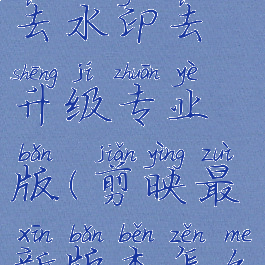 去水印去
shēng jí zhuān yè
升级专业
bǎn jiǎn yìng zuì
版(剪映最
xīn bǎn běn zěn me
新版本怎么